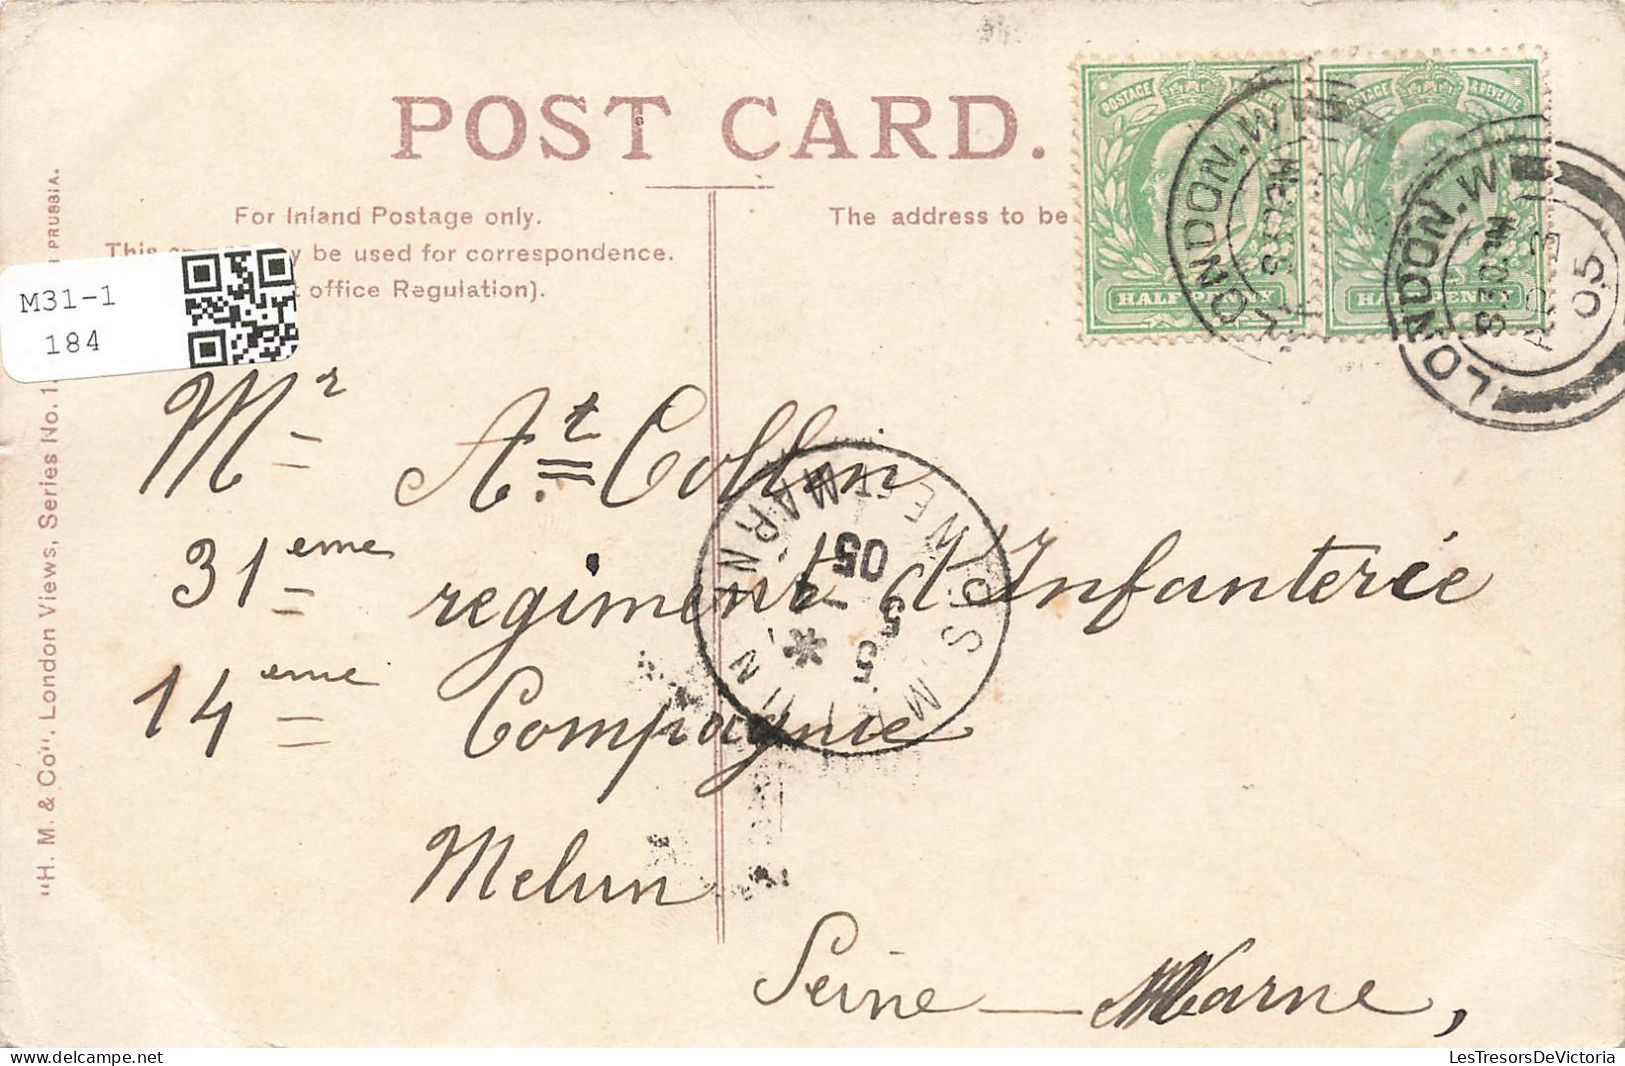 POST CARD.
For Inland Postage only.
The address to be
This may be used for correspondence.
office Regulation).
M31-1
184
POSTAGE REVENUE
HALF PENNY
POSTAGE REVENUE
HALF PENNY
LONDON.W
LONDON.W
8.30 PM
05
Mr At Collin
31eme regiment d'Infanterie
14eme Compagnie
Melun
Seine-Marne,
MELUN
SEINE ET MARNE
05
"H. M. & Co". London Views, Series No. 1 PRUSSIA.
LesTresorsDeVictoria